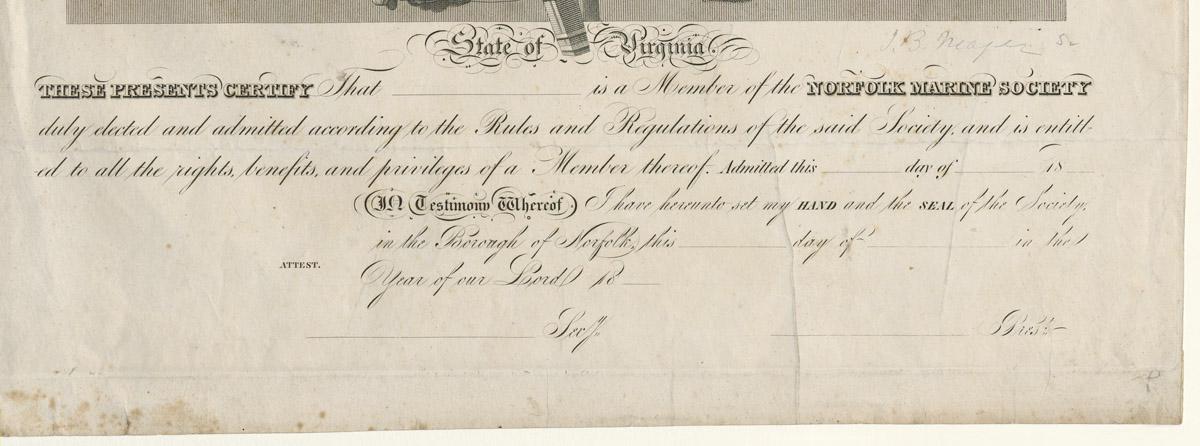 State of Virginia.
THESE PRESENTS CERTIFY That ____ is a Member of the NORFOLK MARINE SOCIETY
duly elected and admitted according to the Rules and Regulations of the said Society, and is entitl-
ed to all the rights, benefits, and privileges of a Member thereof. Admitted this ____ day of ____ 18__
IN Testimony Whereof I have hereunto set my HAND and the SEAL of the Society,
in the Borough of Norfolk, this ____ day of ____ in the
ATTEST.
Year of our Lord 18__
____ Secy. ____ Prest.